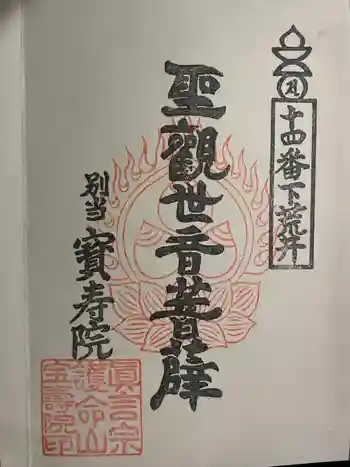 十四番下荒井
聖觀世音菩薩
別当寳寿院
眞言宗
護命山
宝壽院印